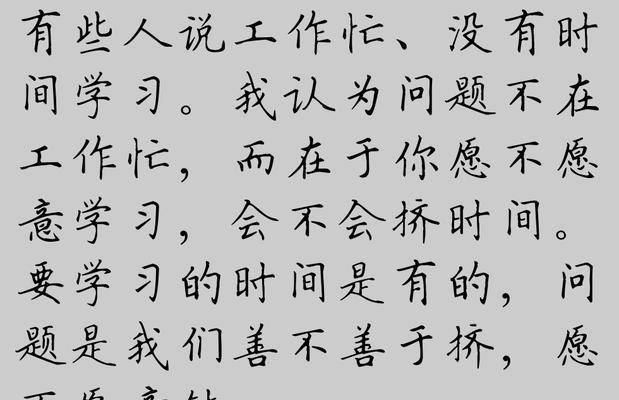 有些人说工作忙、没有时
间学习。我认为问题不在
工作忙，而在于你愿不愿
意学习，会不会挤时间。
要学习的时间是有的，问
题是我们善不善于挤，愿